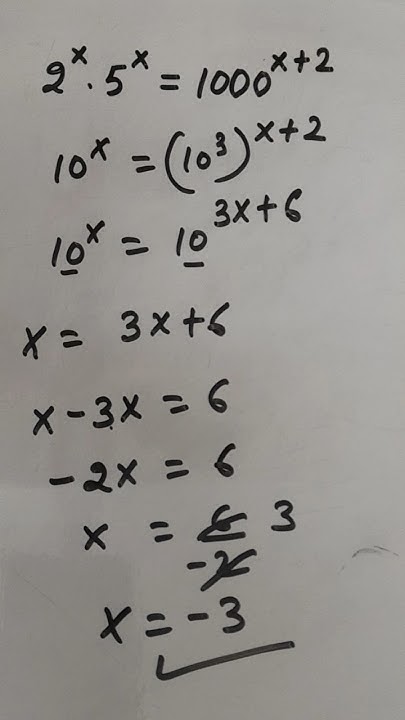 2^x . 5^x = 1000^(x+2)
10^x = (10^3)^(x+2)
10^x = 10^(3x+6)
x = 3x+6
x - 3x = 6
-2x = 6
x = 6/-2 3
x = -3